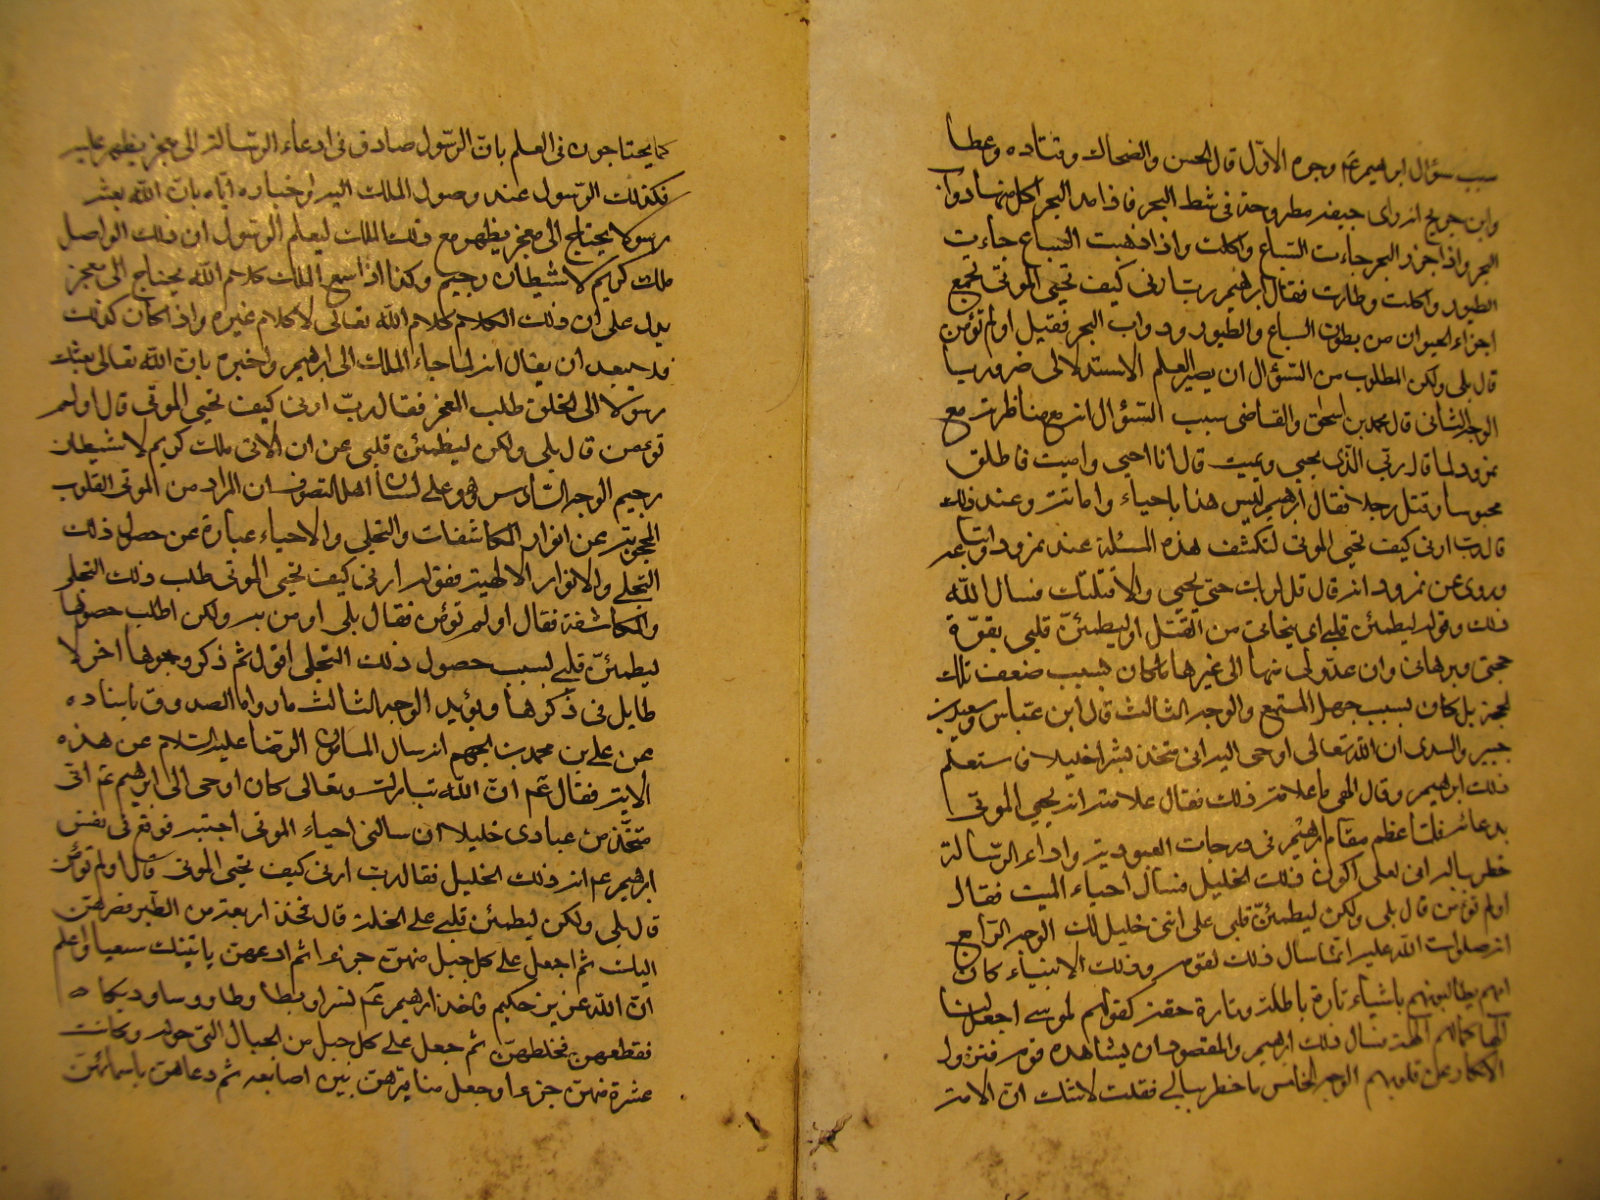 سبب سؤال ابرهيم عم وجوه الاول قال الحسن والضحاك وقتاده وعطا
وابن جريج انه راى جيفة مطروحة فى شط البحر فاذا مد البحر اكل منها دواب
البحر واذا جزر البحر جاءت السباع واكلت واذا ذهبت السباع جاءت
الطيور واكلت وطارت فقال ابرهيم رب ارنى كيف تحيى الموتى تجمع
اجزاء الحيوان من بطون السباع والطيور ودواب البحر فقيل اولم تؤمن
قال بلى ولكن المطلوب من السؤال ان يصير العلم الاستدلالى ضروريا
الوجه الثانى قال محمد بن اسحق والقاضى سبب السؤال انه مع مناظرته مع
نمرود لما قال ربى الذى يحيى ويميت قال انا احيى واميت فاطلق
محبوسا وقتل رجلا فقال ابرهيم ليس هذا باحياء واماتة وعند ذلك
قال رب ارنى كيف تحيى الموتى لتكشف هذه المسئلة عند نمرود واتباعه
وروى عن نمرود انه قال قل لربك حتى يحيى والا قتلتك فسال الله
ذلك وقوله ليطمئن قلبى اى بنجاتى من القتل او ليطمئن قلبى بقوة
حجتى وبرهانى وان عدولى منها الى غيرها ما كان بسبب ضعف تلك
الحجة بل كان بسبب جهل المستمع والوجه الثالث قال ابن عباس وسعيد بن
جبير والسدى ان الله تعالى اوحى اليه انى متخذ بشرا خليلا فاستعلم
ذلك ابرهيم وقال الهى ما علامة ذلك فقال علامته انه يحيى الموتى
بدعائه فلما عظم مقام ابرهيم فى درجات العبودية واداء الرسالة
خطر بباله انى لعلى اكون ذلك الخليل فسال احياء الميت فقال
اولم تؤمن قال بلى ولكن ليطمئن قلبى على اننى خليل لك الوجه الرابع
انه صلوات الله عليه انما سال ذلك لقومه وذلك الانبياء كان
اممهم يطالبونهم باشياء تارة باطلة وتارة حقة كقولهم لموسى اجعل لنا
الها كما لهم الهة فسال ذلك ابرهيم والمقصود ان يشاهده قومه فتزول
الانكار عن قلوبهم الوجه الخامس ما خطر ببالى فقلت لا شك ان الامة
كما يحتاجون فى العلم بان الرسول صادق فى ادعاء الرسالة الى معجز يظهر عليه
فكذلك الرسول عند وصول الملك اليه واخباره اياه بان الله بعثه
رسولا يحتاج الى معجز يظهر مع ذلك الملك ليعلم الرسول ان ذلك الواصل
ملك كريم لا شيطان رجيم وكذا اذا سمع الملك كلام الله يحتاج الى معجز
يدل على ان ذلك الكلام كلام الله تعالى لا كلام غيره واذا كان كذلك
فلا يبعد ان يقال انه لما جاء الملك الى ابرهيم واخبره بان الله تعالى بعثك
رسولا الى الخلق طلب المعجز فقال رب ارنى كيف تحيى الموتى قال اولم
تؤمن قال بلى ولكن ليطمئن قلبى عن ان الاتى ملك كريم لا شيطان
رجيم الوجه السادس وهو على لسان اهل التصوف ان المراد من الموتى القلوب
المحجوبة عن انوار المكاشفات والتجلى والاحياء عبارة عن حصول ذلك
التجلى والانوار الالهية فقوله ارنى كيف تحيى الموتى طلب ذلك التجلى
والمكاشفة فقال اولم تؤمن فقال بلى اومن به ولكن اطلب حصولها
ليطمئن قلبى بسبب حصول ذلك التجلى اقول ثم ذكر وجوها اخر لا
طايل فى ذكرها ويؤيد الوجه الثالث ما رواه الصدوق باسناده
عن على بن محمد بن الجهم انه سال المامون الرضا عليه السلام عن هذه
الاية فقال عم ان الله تبارك وتعالى كان اوحى الى ابرهيم عم انى
متخذ من عبادى خليلا ان سالنى احياء الموتى اجبته فوقع فى نفس
ابرهيم عم انه ذلك الخليل فقال رب ارنى كيف تحيى الموتى قال اولم تؤمن
قال بلى ولكن ليطمئن قلبى على الخلة قال فخذ اربعة من الطير فصرهن
اليك ثم اجعل على كل جبل منهن جزءا ثم ادعهن ياتينك سعيا واعلم
ان الله عزيز حكيم فاخذ ابرهيم عم نسرا وبطا وطاووسا وديكا
فقطعهن فخلطهن ثم جعل على كل جبل من الجبال التى حوله وكانت
عشرة منهن جزءا وجعل مناقيرهن بين اصابعه ثم دعاهن باسمائهن